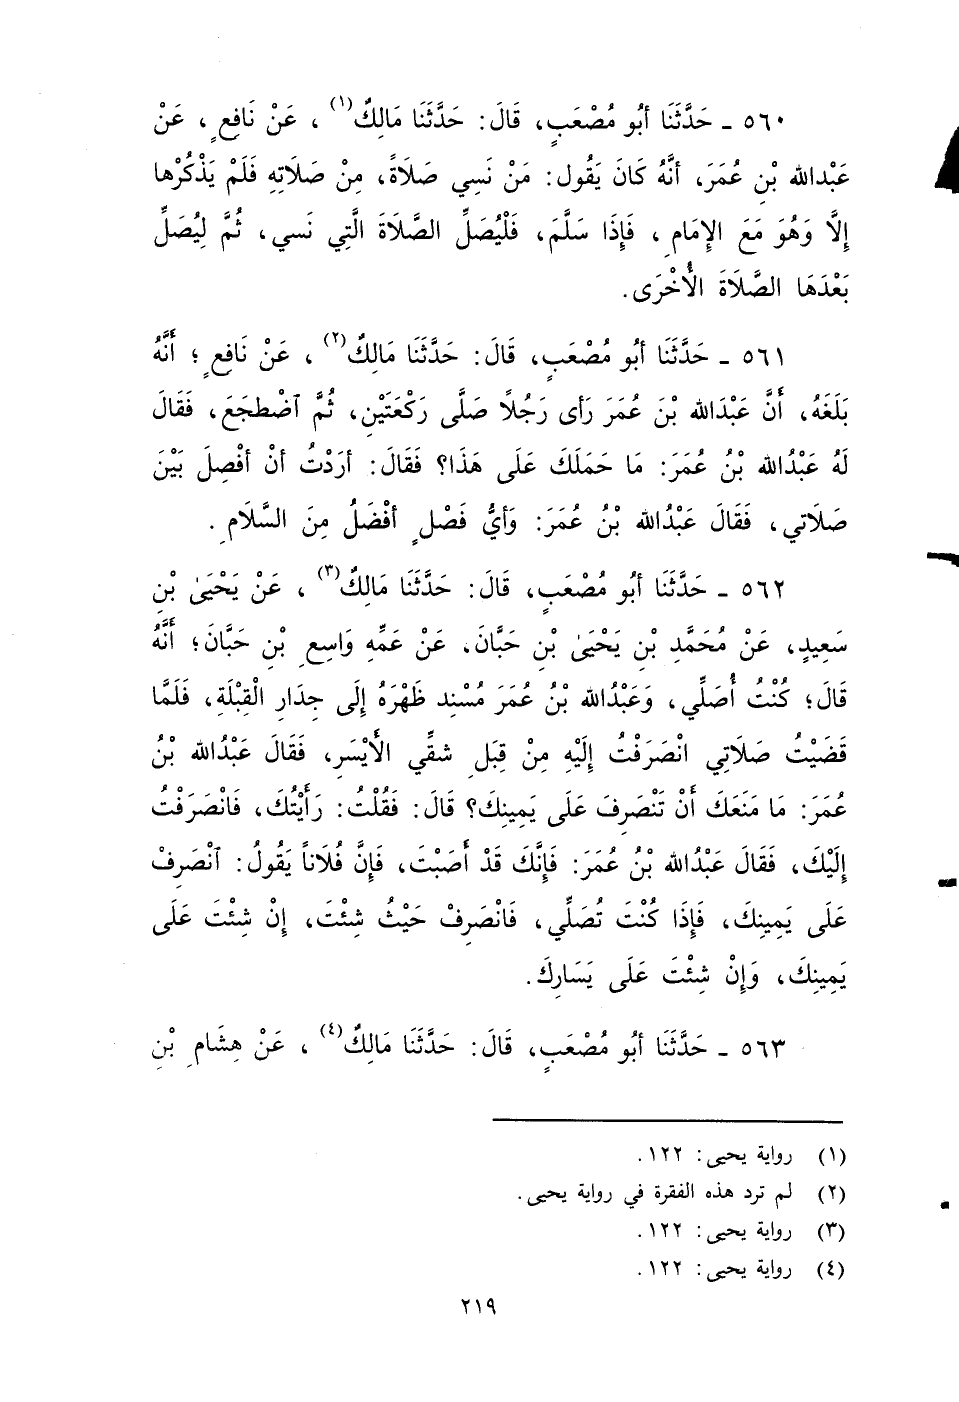 ٥٦٠ ـ حَدَّثَنَا أبُو مُصْعَبٍ، قَالَ: حَدَّثَنَا مَالِكٌ(١) ، عَنْ نَافِعٍ ، عَنْ
عَبْدالله بْنِ عُمَرَ، أنَّهُ كَانَ يَقُول: مَنْ نَسِي صَلَاةً، مِنْ صَلَاتِهِ فَلَمْ يَذْكُرْها
إِلَّا وَهُوَ مَعَ الإِمَامِ ، فَإِذَا سَلَّمَ، فَلْيُصَلِّ الصَّلَاةَ الَّتِي نَسي، ثُمَّ لِيُصَلِّ
بَعْدَهَا الصَّلَاةَ الْأُخْرَى.
٥٦١ ـ حَدَّثَنَا أبُو مُصْعَبٍ، قَالَ: حَدَّثَنَا مَالِكٌ(٢) ، عَنْ نَافِعٍ ؛ أَنَّهُ
بَلَغَهُ، أَنَّ عَبْدَالله بْنَ عُمَرَ رَأى رَجُلاً صَلَّى رَكْعَتَيْنِ، ثُمَّ اَضْطجَعَ، فَقَالَ
لَهُ عَبْدُالله بْنُ عُمَرَ: مَا حَمَلَكَ عَلَى هَذَا؟ فَقَالَ: أرَدْتُ أنْ أفْصِلَ بَيْنَ
صَلَاتي، فَقَالَ عَبْدُالله بْنُ عُمَرَ: وَأيُّ فَصْلٍ أفْضَلُ مِنَ السَّلَامِ.
٥٦٢ ـ حَدَّثَنَا أبُو مُصْعَبٍ، قَالَ: حَدَّثَنَا مَالكٌ(٣) ، عَنْ يَحْيَىٰ بْنِ
سَعِيدٍ، عَنْ مُحَمَّدِ بْنِ يَحْيَىٰ بْنِ حَبَّانَ، عَنْ عَمِّهِ وَاسِعِ بْنِ حَبَّانَ؛ أَنَّهُ
قَالَ؛ كُنْتُ أُصَلِّي، وَعَبْدُالله بْنُ عُمَرَ مُسْنِد ظَهْرَهُ إِلَى جِدَارِ الْقِبْلَةِ، فَلَمَّا
قَضَيْتُ صَلَاتِي انْصَرَفْتُ إِلَيْهِ مِنْ قِبَلِ شقِّي الأَيْسَرِ، فَقَالَ عَبْدُالله بْنُ
عُمَرَ: مَا مَنَعَكَ أَنْ تَنْصَرِفَ عَلَى يَمِينِكَ؟ قَالَ: فَقُلْتُ: رَأَيْتُكَ، فَانْصَرَفْتُ
إِلَيْكَ، فَقَالَ عَبْدُالله بْنُ عُمَرَ: فَإِنَّكَ قَدْ أَصَبْتَ، فَإِنَّ فُلَاناً يَقُولُ: اَنْصَرِفْ
عَلَى يَمِينِكَ، فَإِذَا كُنْتَ تُصَلِّي، فَانْصَرِفْ حَيْثُ شِئْتَ، إِنْ شِئْتَ عَلَى
يَمِينِكَ، وَإِنْ شِئْتَ عَلَى يَسَارِكَ.
٥٦٣ ـ حَدَّثَنَا أبُو مُصْعَبٍ، قَالَ: حَدَّثَنَا مَالِكٌ(٤) ، عَنْ هِشَامِ بْنِ
(١) رواية يحيى: ١٢٢.
(٢) لم ترد هذه الفقرة في رواية يحيى.
(٣) رواية يحيى: ١٢٢.
(٤) رواية يحيى: ١٢٢.
٢١٩